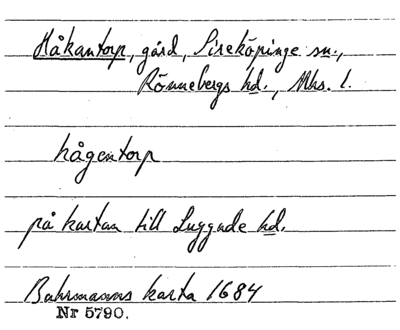 Håkantorp, gård, Sireköpinge sn.,
Rönnebergs hd., Mhs. l.
hågentorp
på kartan till Luggude hd.
Buhrmanns karta 1684
Nr 5790.